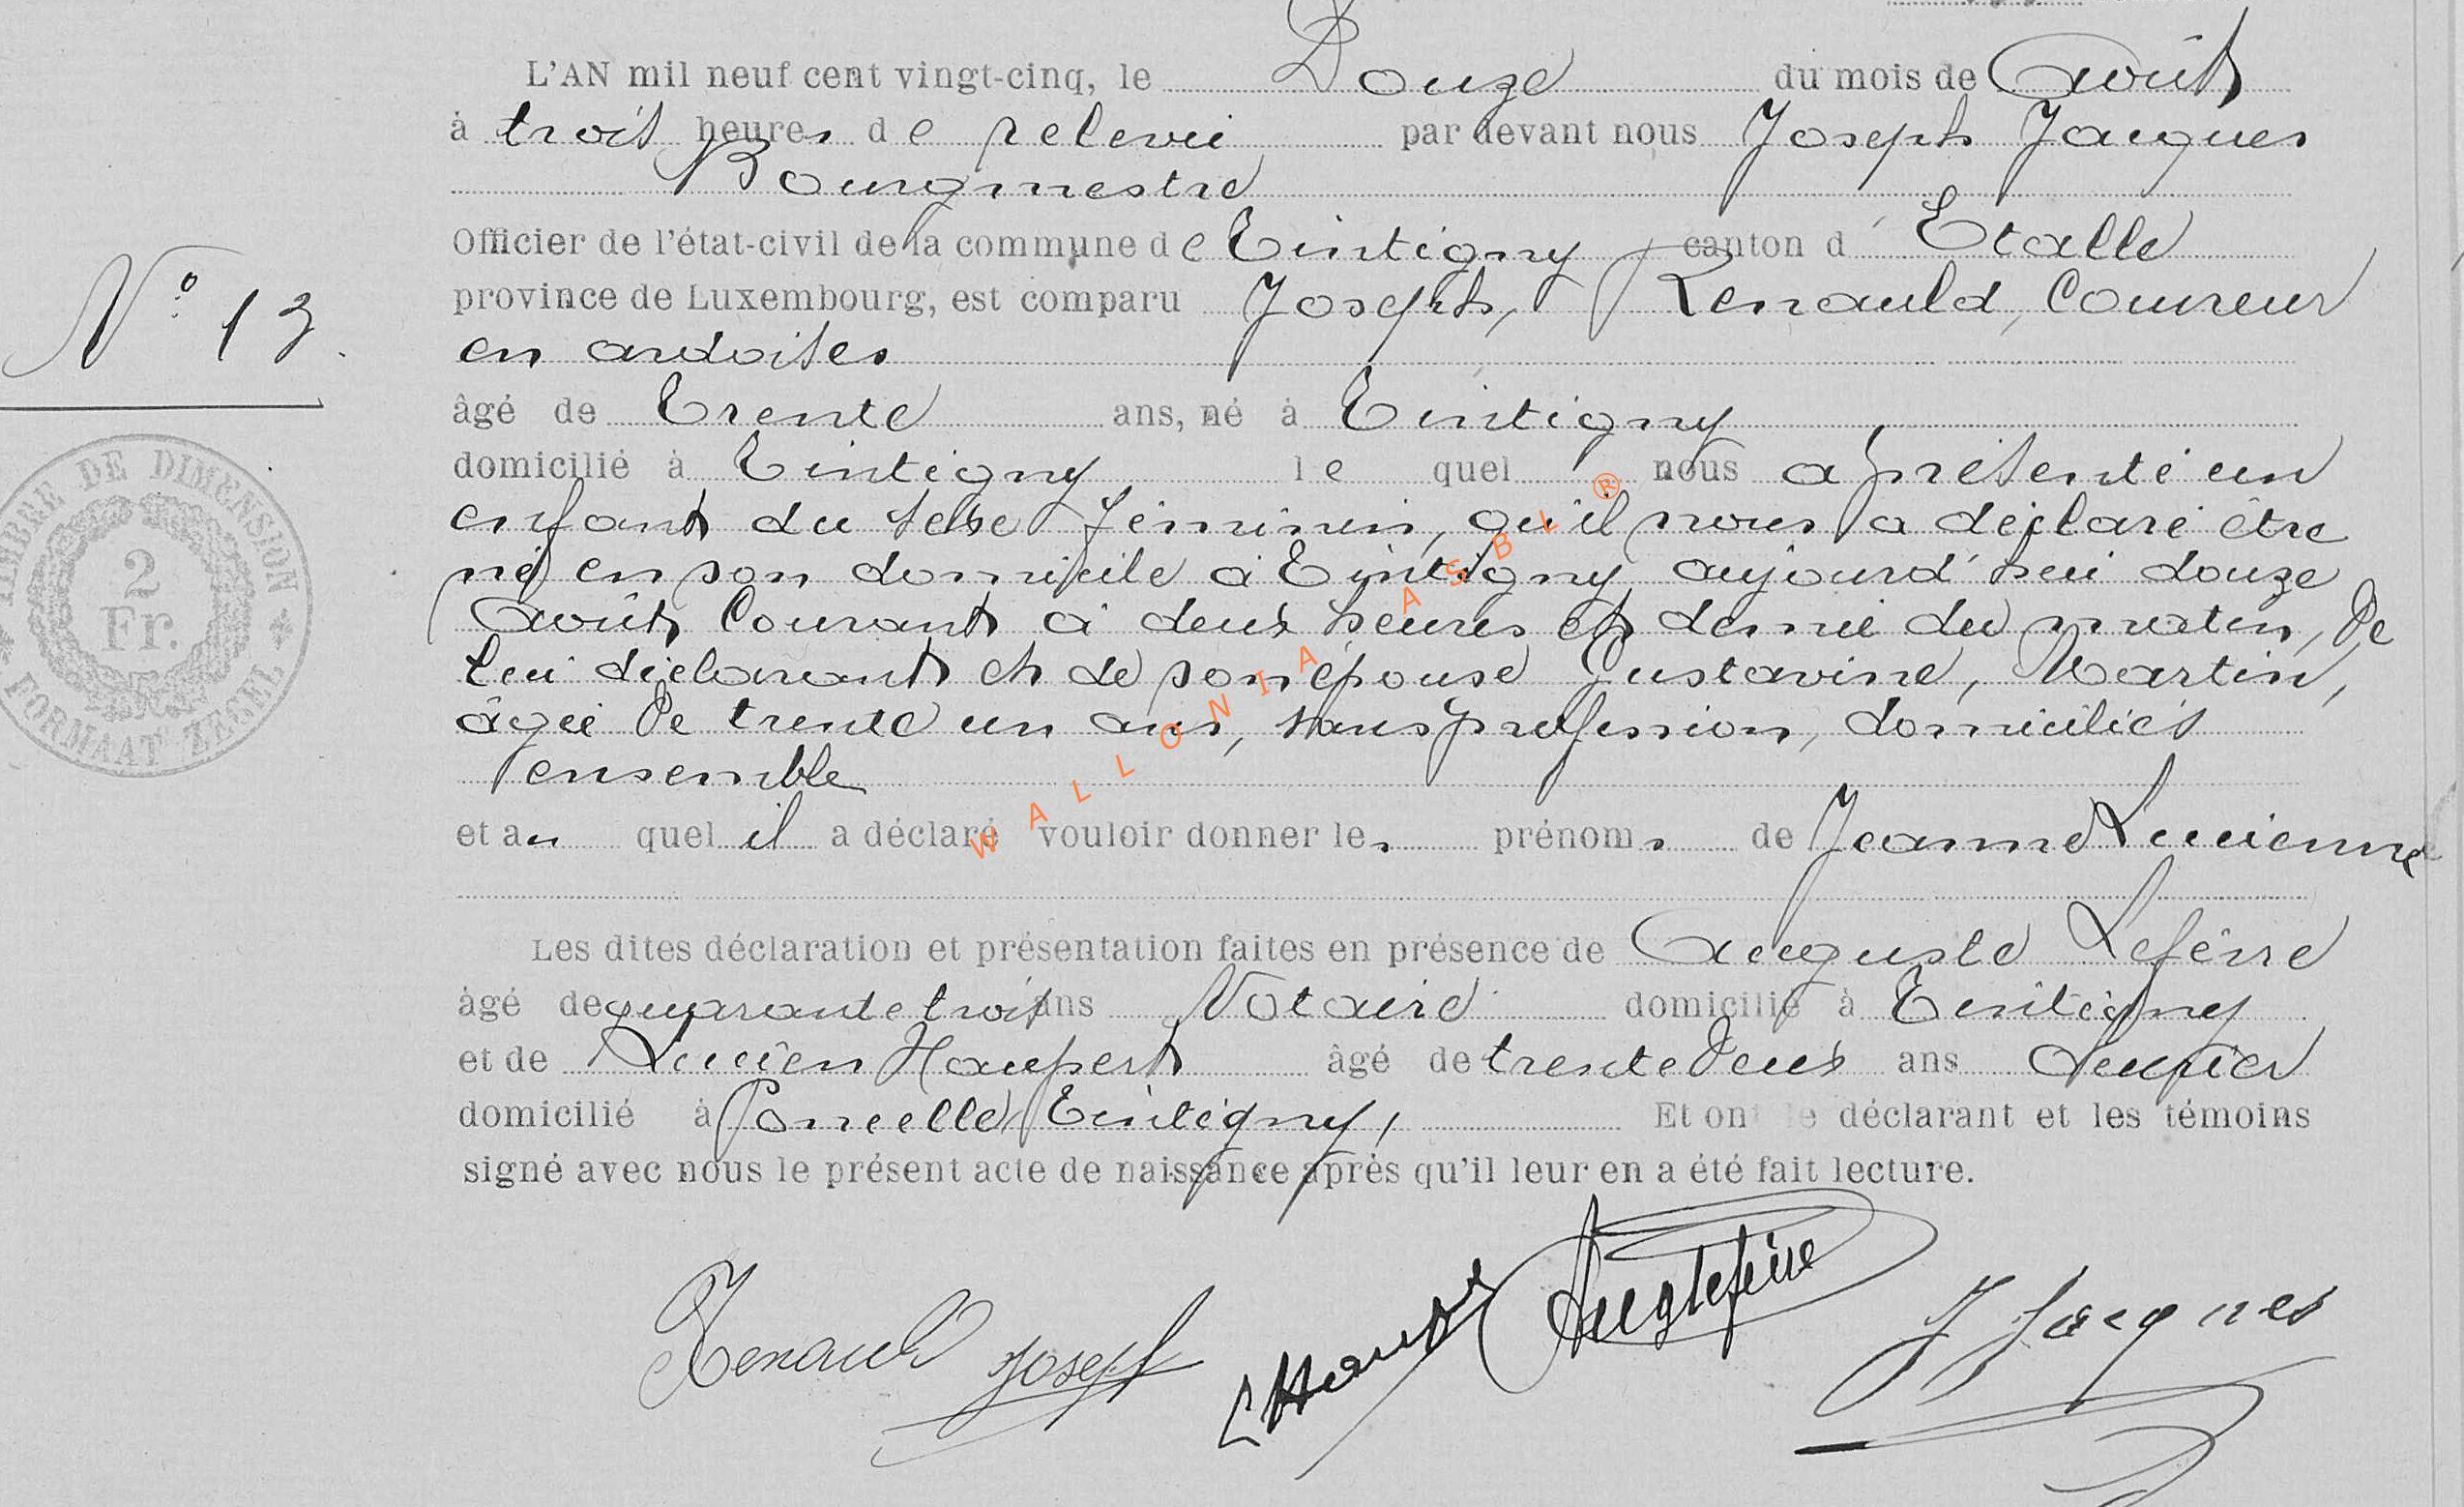 L'AN mil neuf cent vingt-cinq, le Douze du mois de Août
à trois heures de relevée par devant nous Joseph Jacques
Bourgmestre
Officier de l'état-civil de la commune de Tintigny canton d'Etalle
N° 13.
province de Luxembourg, est comparu Joseph, Renauld, Couvreur
en ardoises
âgé de Trente ans, né à Tintigny
domicilié à Tintigny le quel nous a présenté un
enfant du sexe féminin, qu'il nous a déclaré être
né en son domicile à Tintigny aujourd'hui douze
Août Courant à deux heures et demie du matin, de
lui déclarant et de son épouse Gustavine, Martin,
âgée de trente un ans, sans profession, domiciliés
ensemble
et au quel il a déclaré vouloir donner les prénoms de Jeanne Lucienne
Les dites déclaration et présentation faites en présence de Auguste Lefèvre
âgé de quarante trois ans Notaire domicilié à Tintigny
et de Lucien Haupert âgé de trente deux ans
domicilié à Poncelle Tintigny, Et ont le déclarant et les témoins
signé avec nous le présent acte de naissance après qu'il leur en a été fait lecture.
Renauld Joseph
L Haupert
Aug Lefèvre
J Jacques
TIMBRE DE DIMENSION
2
Fr.
FORMAAT ZEGEL
WALLONIA ASBL ®